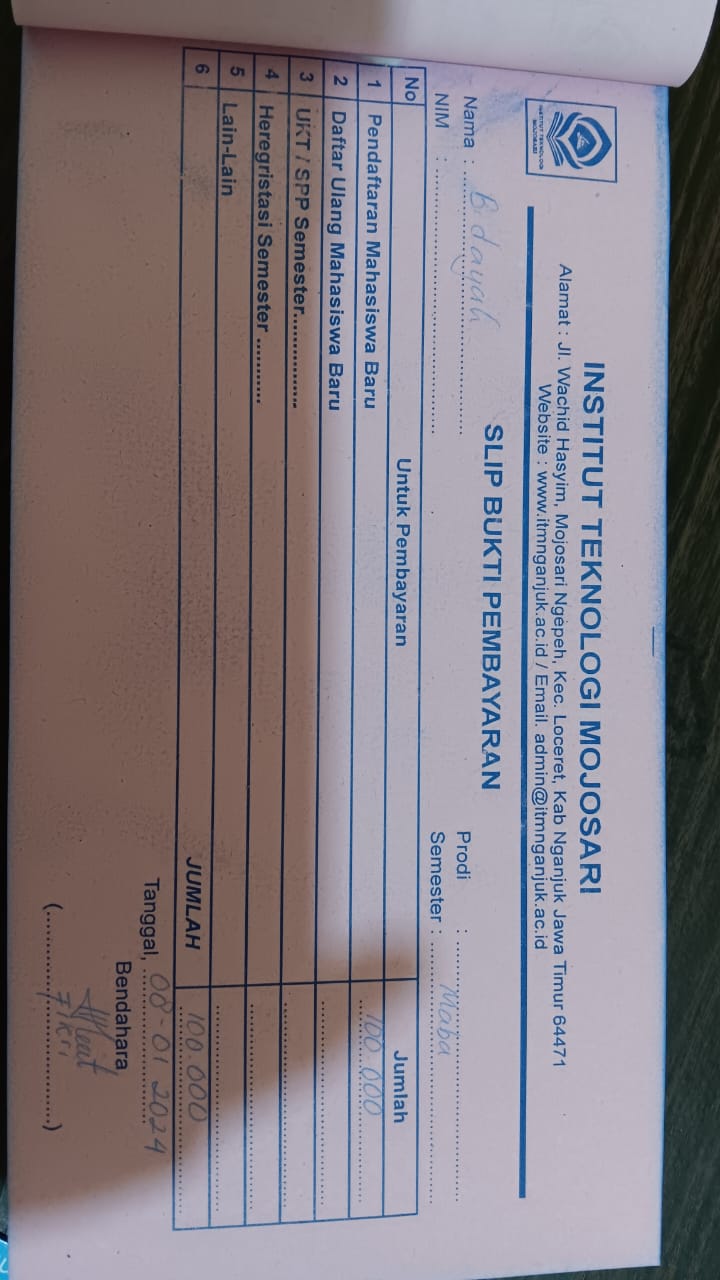 INSTITUT TEKNOLOGI MOJOSARI
INSTITUT TEKNOLOGI MOJOSARI
Alamat : Jl. Wachid Hasyim, Mojosari Ngepeh, Kec. Loceret, Kab Nganjuk Jawa Timur 64471
Website : www.itmnganjuk.ac.id / Email. admin@itmnganjuk.ac.id
SLIP BUKTI PEMBAYARAN
Nama : Bidayah Prodi :
NIM : Semester : Maba
No Untuk Pembayaran Jumlah
1 Pendaftaran Mahasiswa Baru 100.000
2 Daftar Ulang Mahasiswa Baru
3 UKT / SPP Semester................
4 Heregristasi Semester ............
5 Lain-Lain
6 JUMLAH 100.000
Tanggal, 08-01 2024
Bendahara
Fikri
(............................)